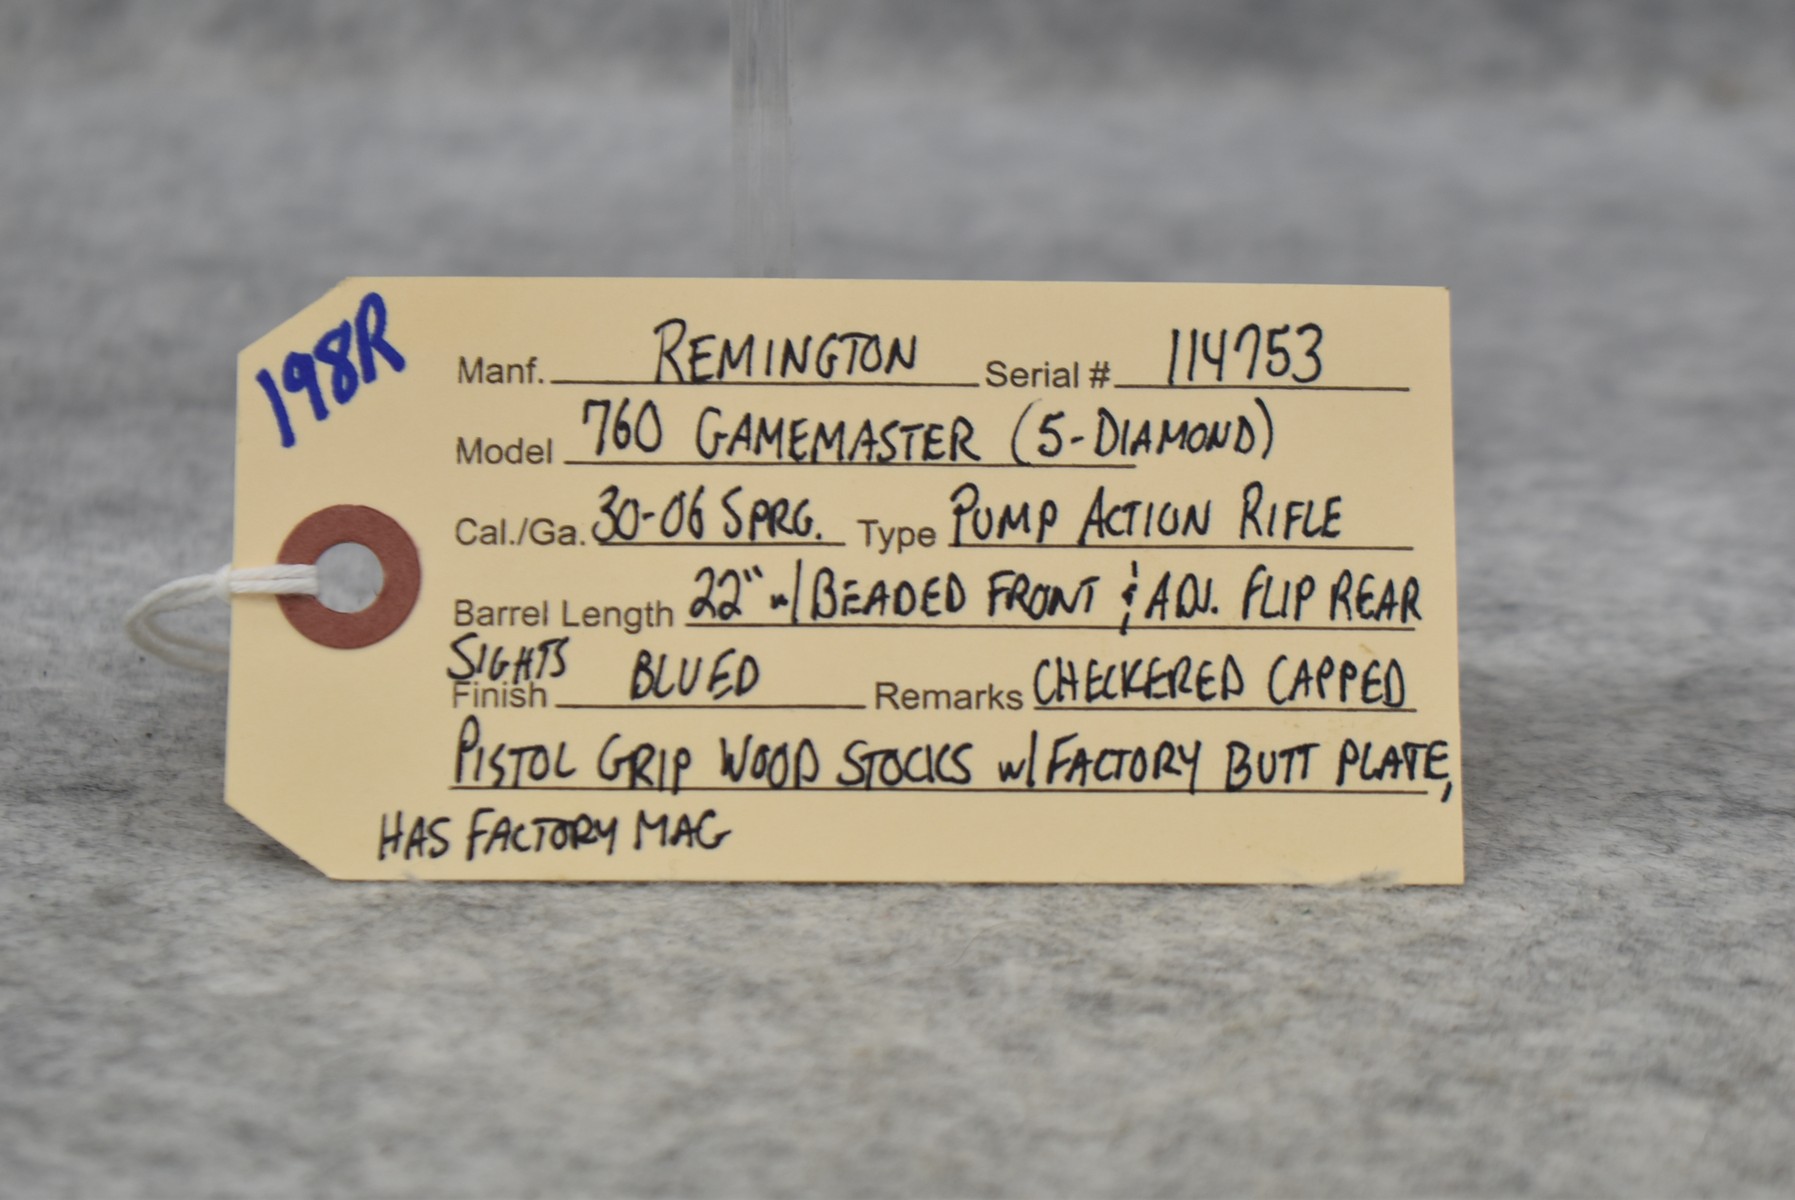 198R
Manf. REMINGTON Serial # 114753
Model 760 GAMEMASTER (5-DIAMOND)
Cal./Ga. 30-06 SPRG. Type PUMP ACTION RIFLE
Barrel Length 22" w/ BEADED FRONT & ADJ. FLIP REAR
SIGHTS
Finish BLUED Remarks CHECKERED CAPPED
PISTOL GRIP WOOD STOCKS w/ FACTORY BUTT PLATE,
HAS FACTORY MAG